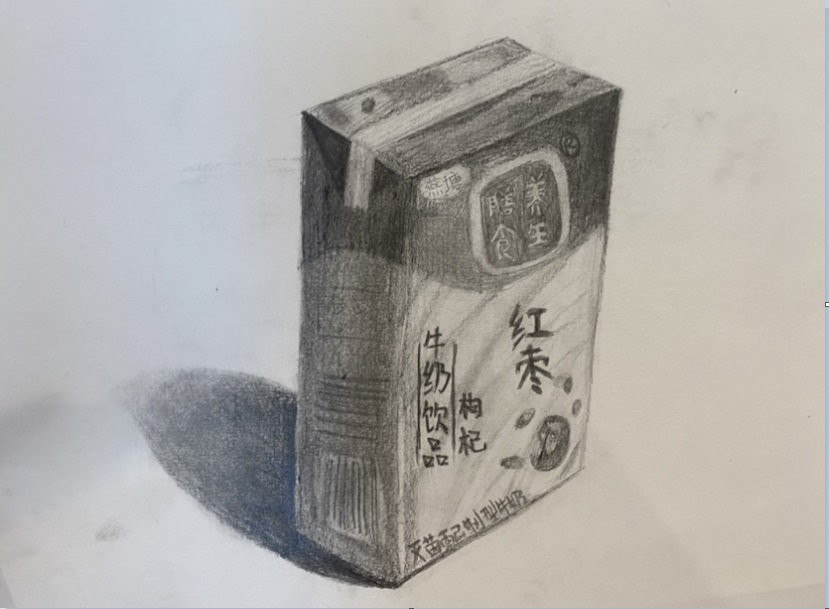 燕塘
养生
膳食
®
红枣
枸杞
牛奶饮品
灭苗配制型牛奶